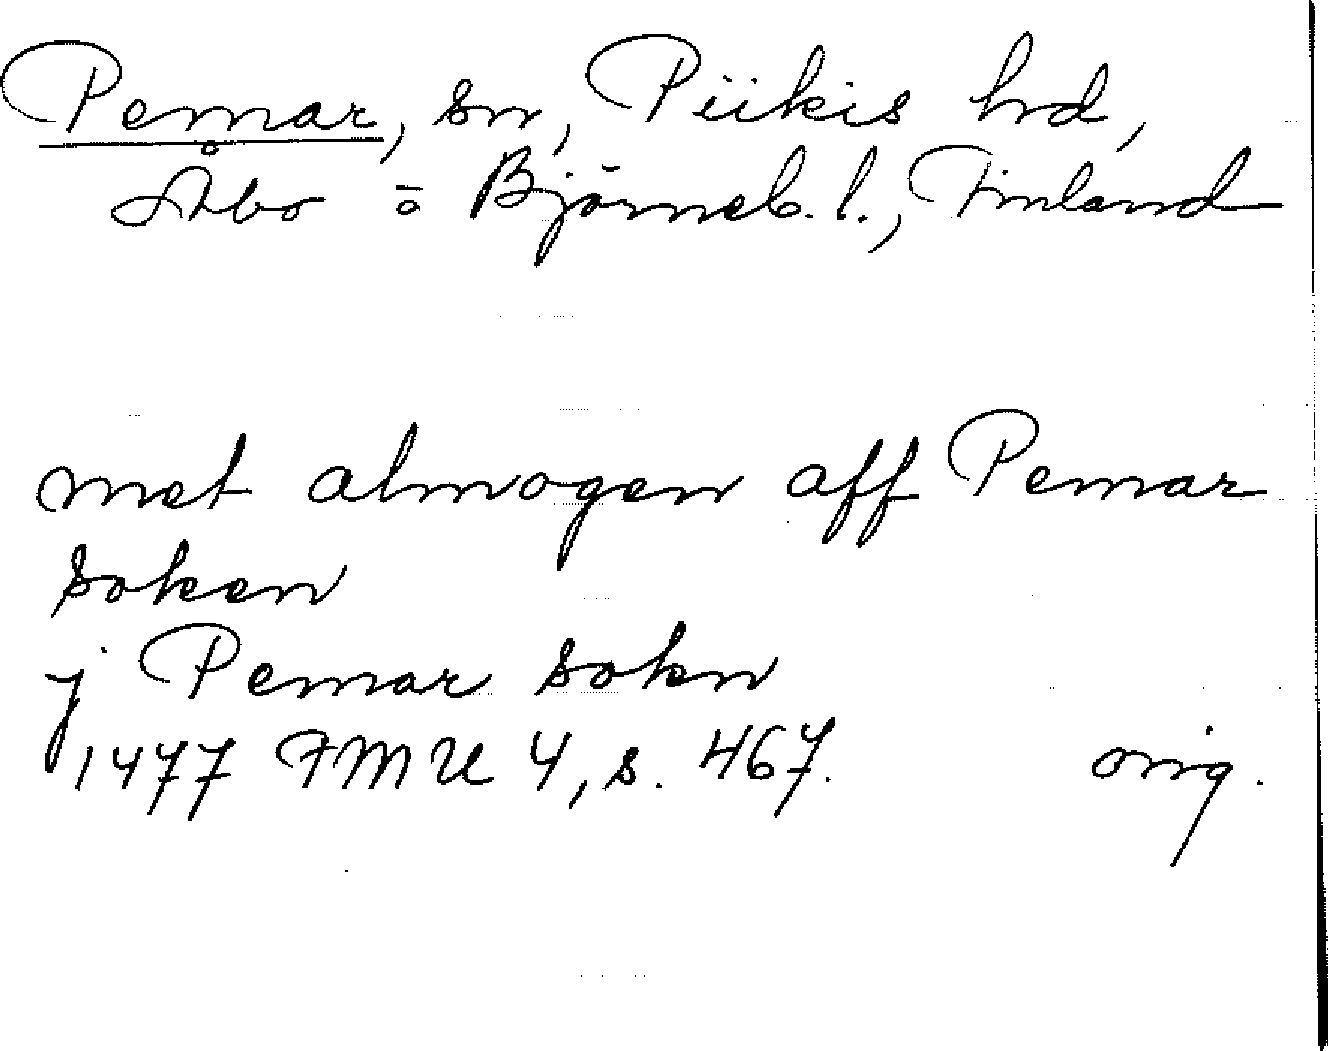 Pemar, sn, Piikis hd,
Åbo o Björneb. l., Finland
met almogen aff Pemar
soken
j Pemar sokn
1477 FMU 4, s. 467. orig.